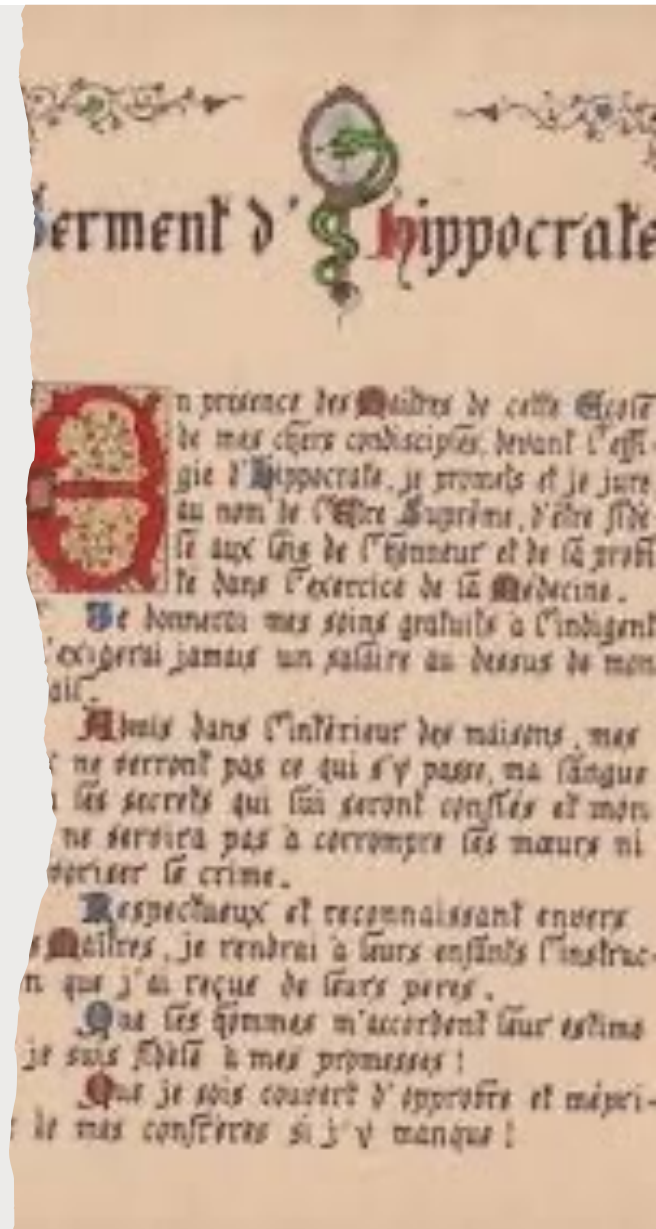 Serment d'hippocrate
En présence des Maîtres de cette Ecole
de mes chers condisciples, devant l'effi-
gie d'Hippocrate, je promets et je jure,
au nom de l'Etre Suprême, d'être fidè-
le aux lois de l'honneur et de la probi
te dans l'exercice de la Médecine.
Je donnerai mes soins gratuits a l'indigent
'exigerai jamais un salaire au dessus de mon
ail.
Admis dans l'intérieur des maisons, mes
ne verront pas ce qui s'y passe, ma langue
les secrets qui lui seront confiés et mon
ne servira pas à corrompre les mœurs ni
voriser le crime.
Respectueux et reconnaissant envers
s Maîtres, je rendrai à leurs enfants l'instruc-
n que j'ai reçue de leurs peres.
Que les hommes m'accordent leur estime
je suis fidèle à mes promesses !
Que je sois couvert d'opprobre et mépri-
de mes confrères si j'y manque !